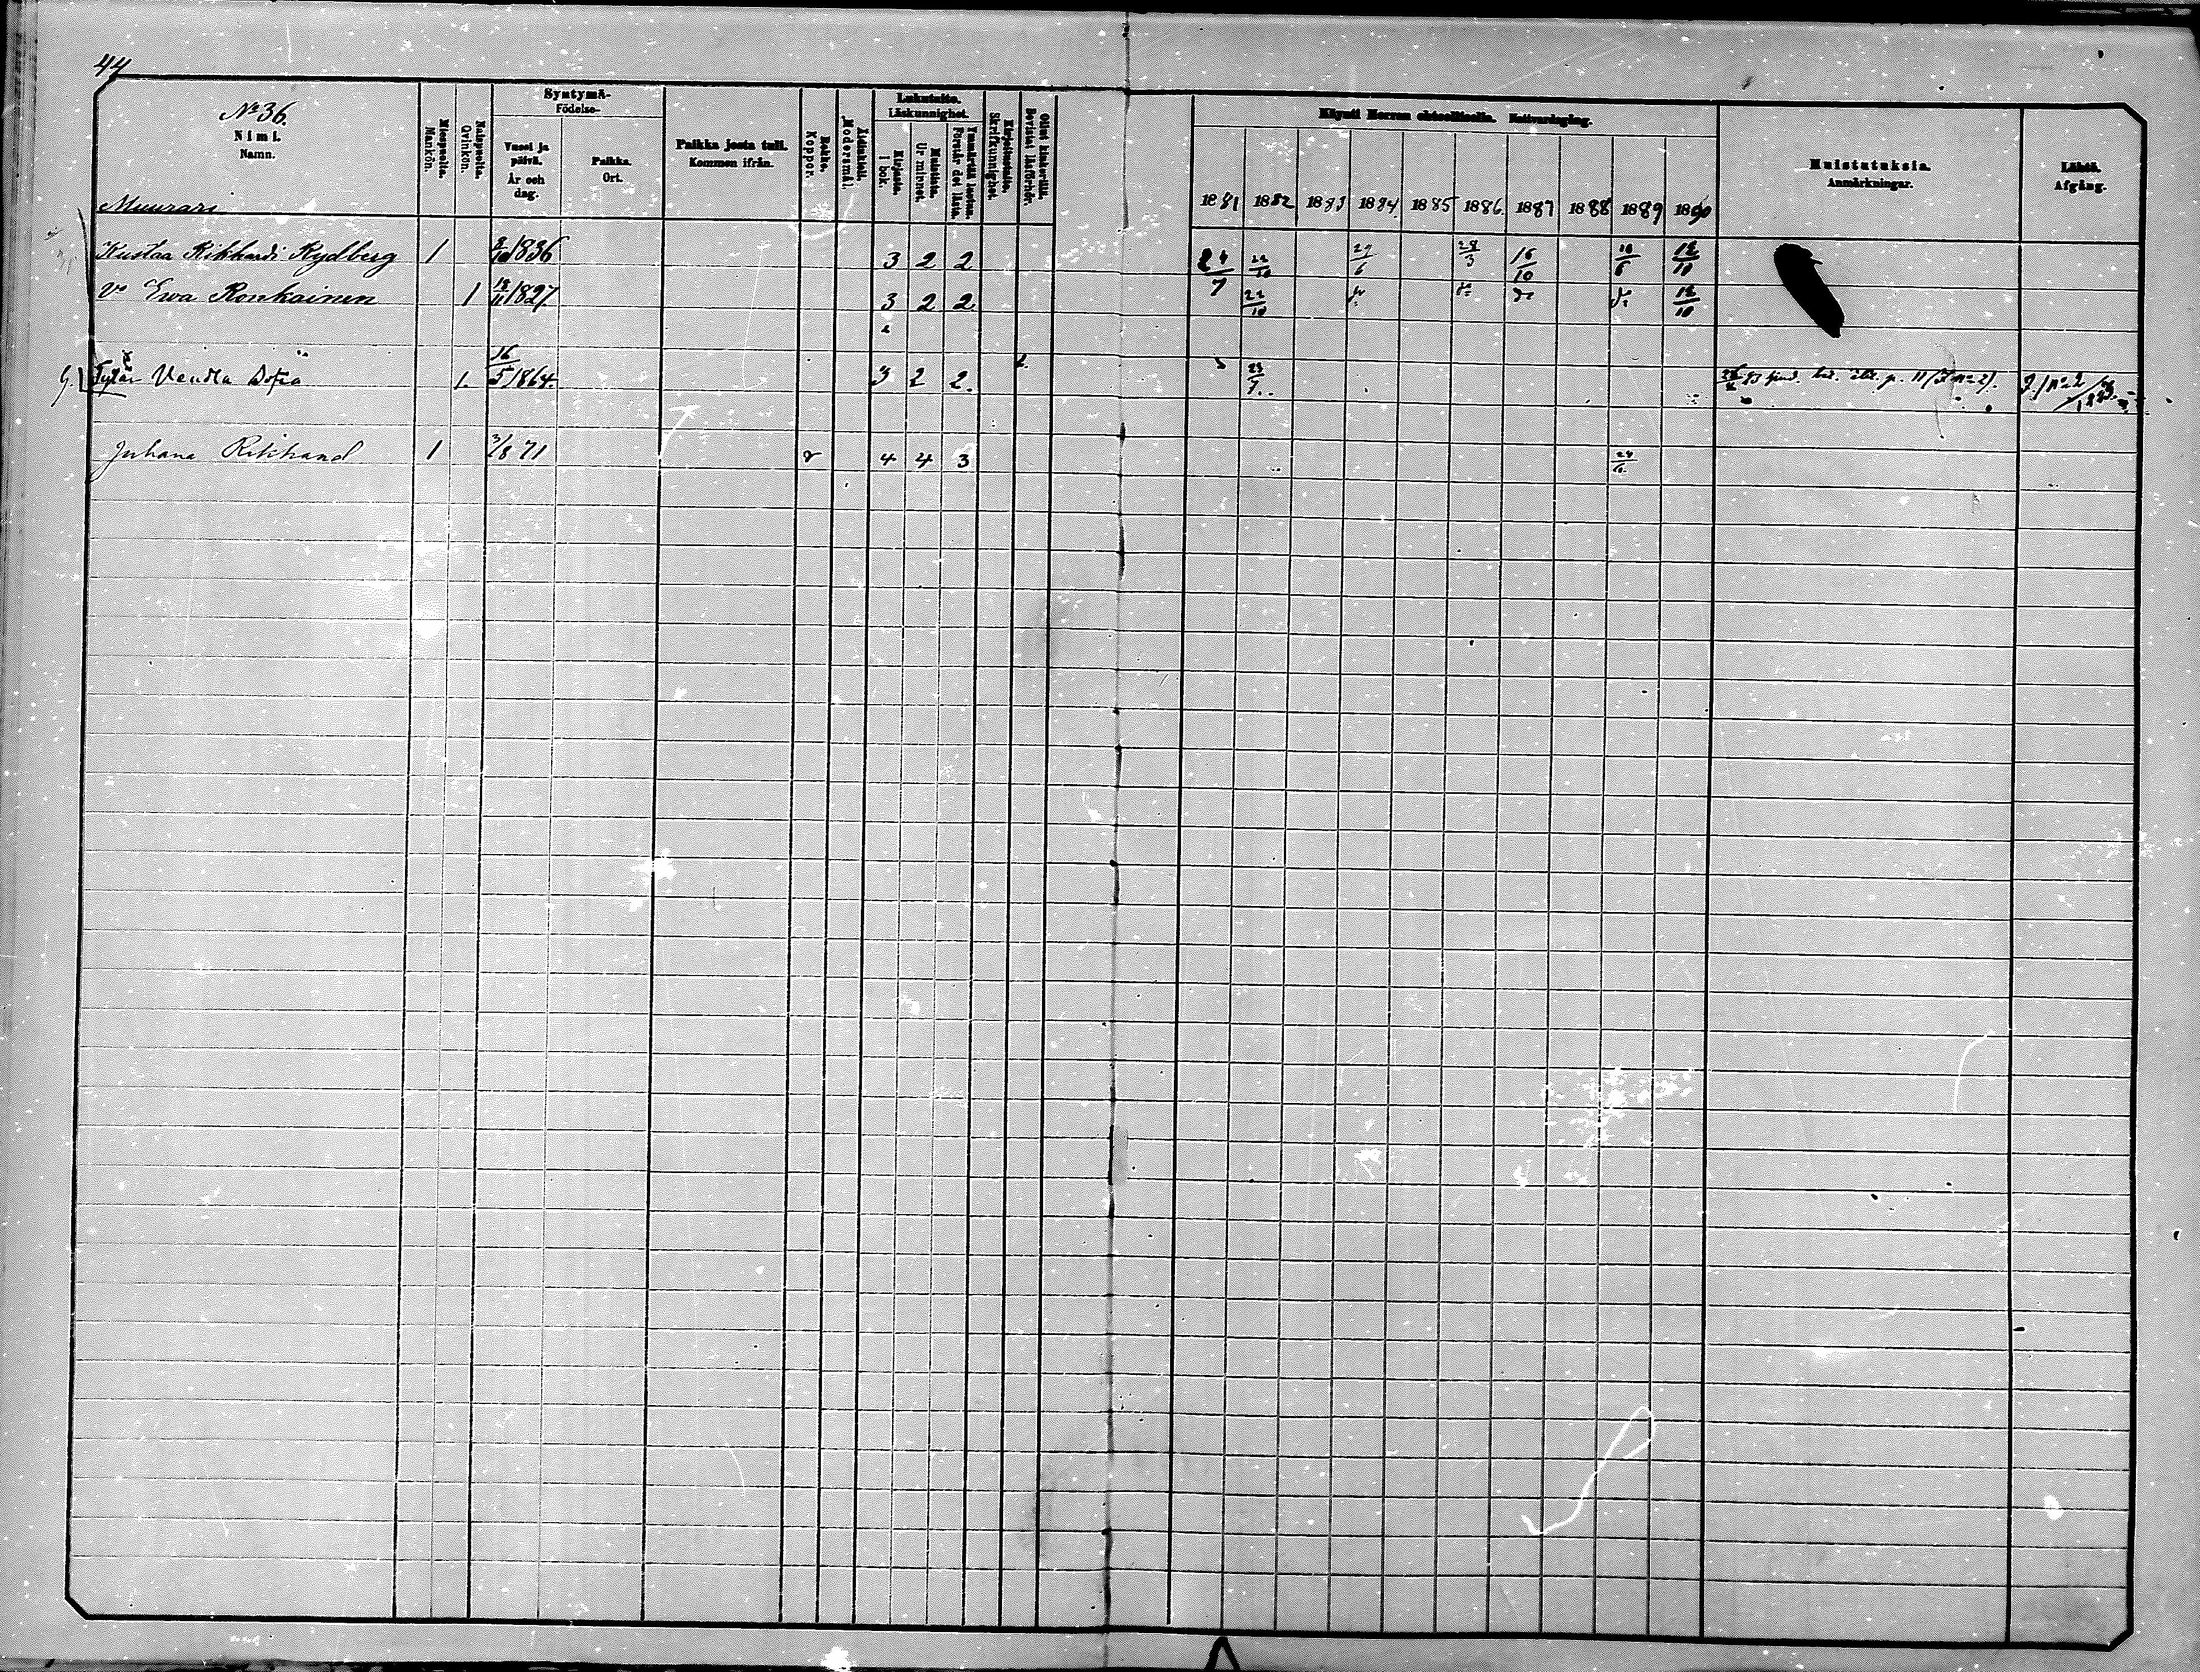 44
No 36.
Nimi.
Namn.
Miespuolta.
Mankön.
Naispuolta.
Qvinkön.
Syntymä-
Födelse-
Vuosi ja päivä.
År och dag.
Paikka.
Ort.
Paikka josta tuli.
Kommen ifrån.
Rokko.
Koppor.
Äidinkieli.
Modersmål.
Lukutaito.
Läskunnighet.
Kirjasta.
I bok.
Muistista.
Ur minnet.
Ymmärtää luetun.
Förstår det lästa.
Kirjoitustaito.
Skrifkunnighet.
Ollut kinkerillä.
Bevistat läsförhör.
Käynti Herran ehtoollisella. Nattvardsgång.
1881 1882 1883 1884 1885 1886 1887 1888 1889 1890
Muistutuksia.
Anmärkningar.
Lähtö.
Afgång.
Muurari
Kustaa Rikhardi Rydberg 1 1836 3 2 2 24/7 22/10 29/6 28/3 16/10 16/6 12/10
Vo Ewa Ronkainen 1 1827 3 2 2 22/10 do do do do 12/10
Tytär Vendla Sofia 1. 16/5 1864. 3 2 2. 23/7.
Juhana Rikhard 1 3/8 71 r 4 4 3 24/6.